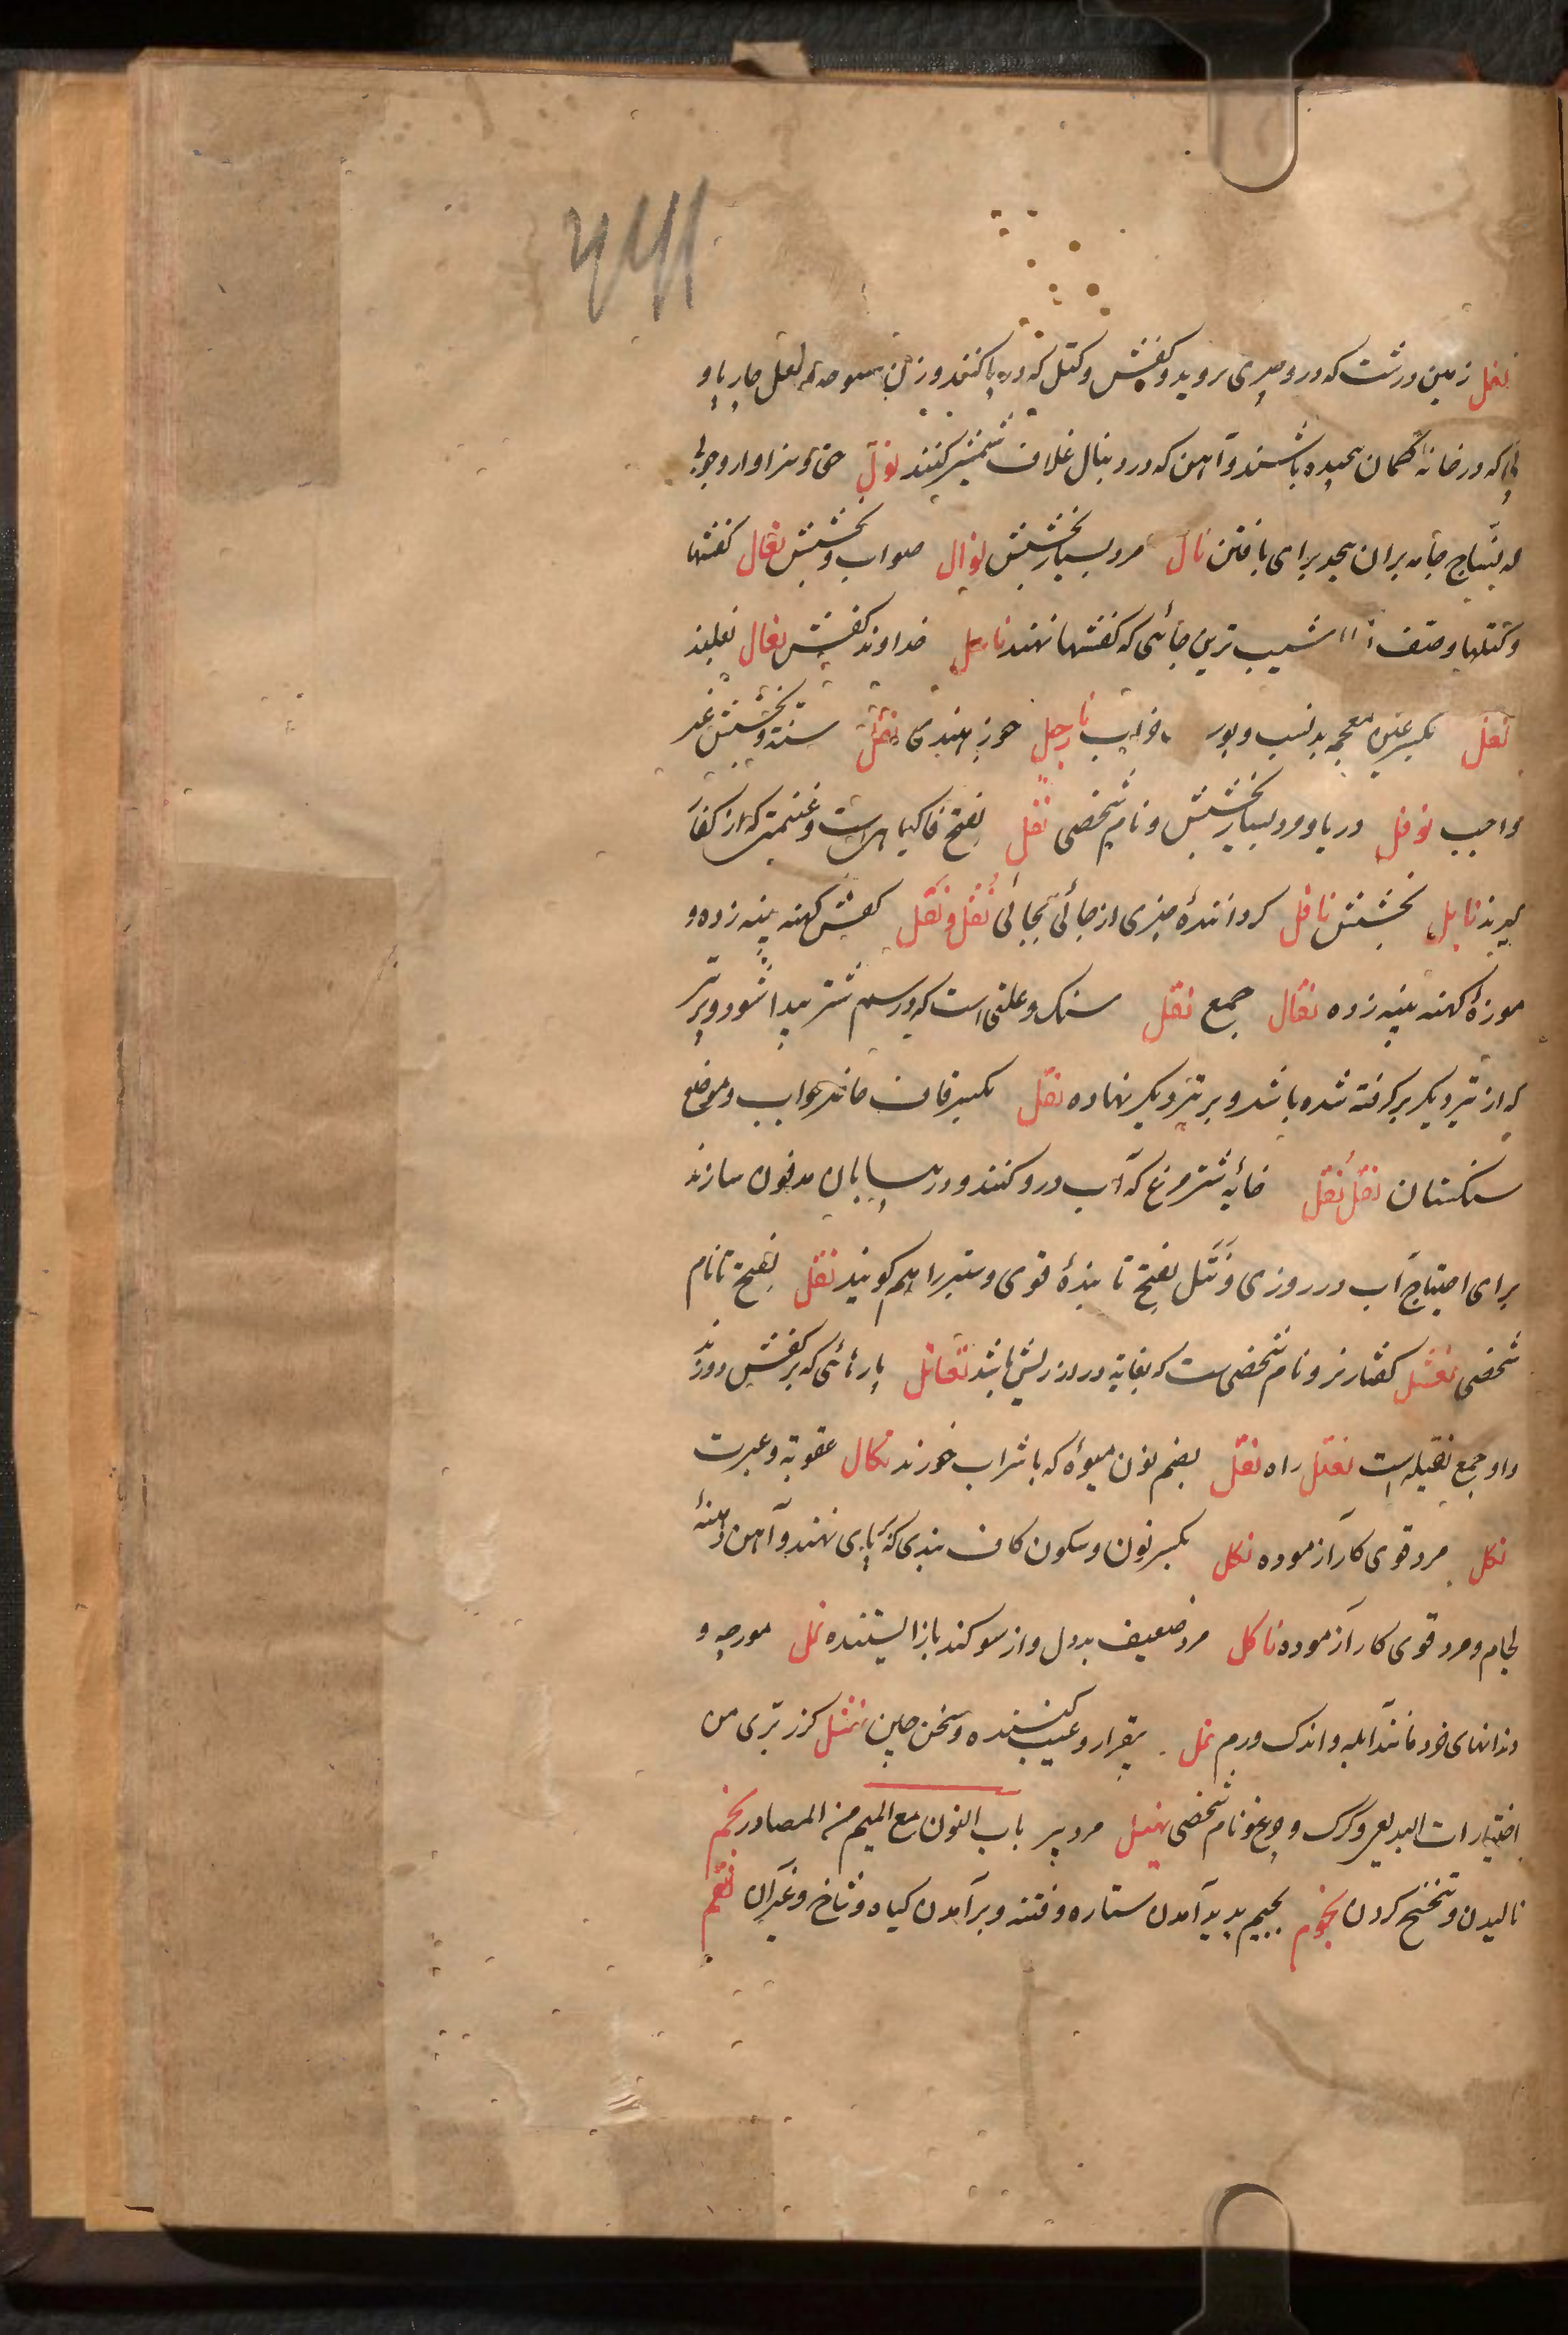 نعل زمین درشت که درو چیزی نروید و کفش و کتل که در پا کنند و زن منکوحه و نعل چارپا و
پی که در خانهٔ کمان پیچیده باشند و آهن که در دنبال غلاف شمشیر کنند نول حق و سزاوار و چوبی
که نساج جامه بران پیچد برای بافتن نال مرد بسیار بخشش نوال صواب و بخشش نعال کفشها
و کتلها و صف شیب ترین جائی که کفشها نهند ناعل خداوند کفش نعال نعلبند
نغل بکسر غین معجمه بد نسب و پور نارجیل جوز هندی نفل سنة و بخشش غیر
واجب نوفل دریا و مرد بسیار بخشش و نام شخصی نفل بفتح فا گیاهی است و غنیمتی که از کفار
گیرند نایل بخشش ناقل گرداننده چیزی از جائی بجائی نُقل و نَقل کفش کهنه پینه زده و
موزهٔ کهنه پینه زده نقال جمع نقل سنگ و علتی است که در سم شتر پیدا شود و پر تیر
که از تیر دیگر بر گرفته شده باشد و بر تیر دیگر نهاده نقل بکسر قاف حاضر جواب و موضع
سنگستان نقل نقل خایه شتر مرغ که آب درو کنند و در بیابان مدفون سازند
برای احتیاج آب در روزی و نتل بفتح تا بندهٔ قوی و ستبر را هم گویند نتل بفتح تا نام
شخصی نعثل کفتار نر و نام شخصی ست که بغایة دراز ریش باشد نقائل پارهائی که بر کفش دوزند
و او جمع نقیله است نقیل راه نقل بضم نون میوهٔ که با شراب خورند نکال عقوبة و عبرت
نکل مرد قوی کار آزموده نکل بکسر نون و سکون کاف بندی که بر پای نهند و آهن دهنهٔ
لجام و مرد قوی کار آزموده ناکل مرد ضعیف بد دل و از سوگند باز ایستنده نمل مورچه و
دندانهای خرد مانند آبله و اندک ورم نمل بیقرار و عیب کننده و سخن چین نهشل گزر بری من
اختیارات البدیعی و گرگ و چرغ و نام شخصی نهبل مرد پیر باب النون مع المیم من المصادر نحم
نالیدن و تنحنح کردن نجوم بجیم پدید آمدن ستاره و فتنه و برآمدن گیاه و شاخ و غیر آن نقم